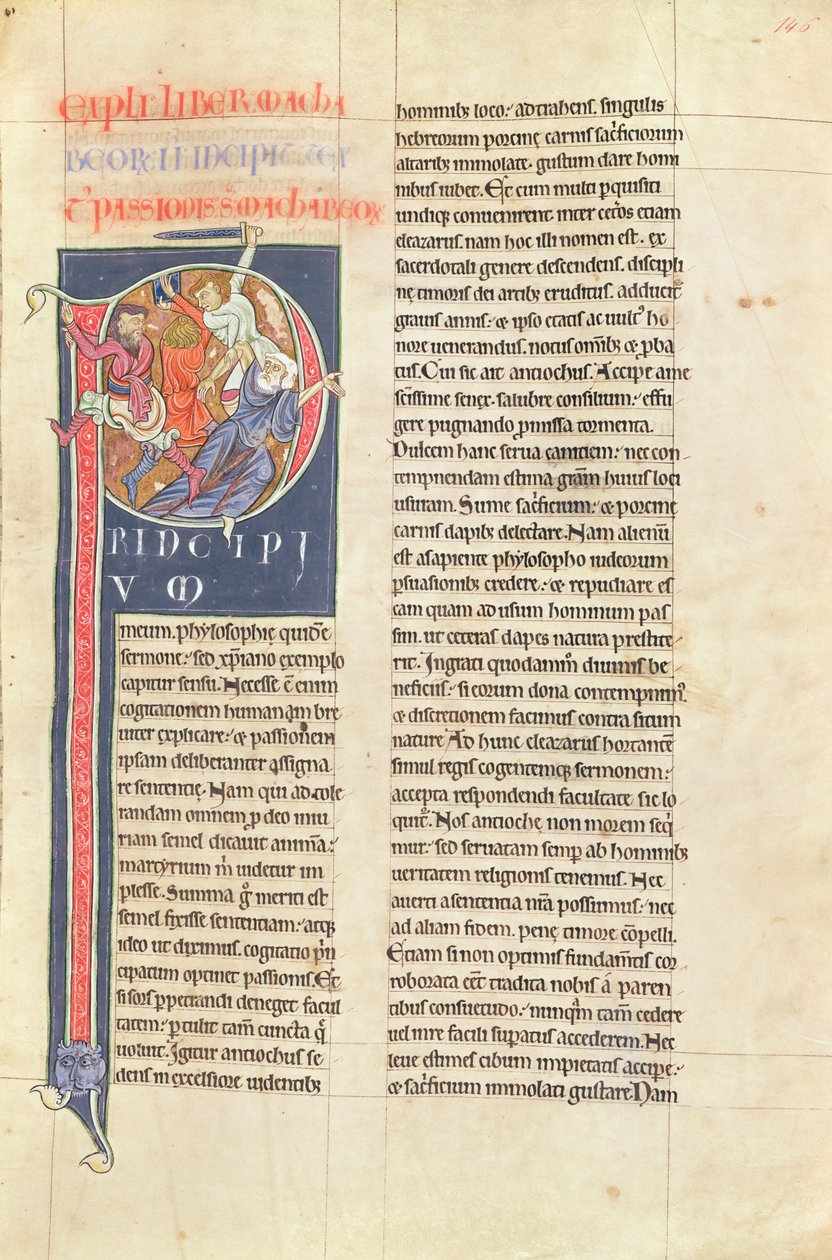 146
EXPLI. LIBER. MACHA
BEORꝜ. II. INCIPIT. TEX
T᾽ PASSIONIS. S. MACHABEOꝜ
PRINCIPI
VM
meum. phylosophię quidē
sermone. sed xp̄iano exemplo
capitur sensu. Necesse ē enim
cogitationem humanam bre
uiter explicare. & passionem
ipsam deliberanter assigna
re sententię. Nam qui ad tole
randam omnem p̱ deo iniu
riam semel dicauit animā.
martyrium m̄ uidetur im
plesse. Summa g̊ meriti est
semel fixisse sententiam. atq;
ideo ut diximus. cogitatio p̄n
cipatum optinet passionis. Et
si sors ꝑpetrandi deneget facul
tatem. ꝑtulit tam̄ cuncta q̄
uoluit. Igitur antiochus se
dens in excelsiore uidentib;
hominib; loco. adtrahens. singulis
hebreorum porcinę carnis sac̄ficiorum
altarib; immolatę. gustum dare homi
nibus iubet. Et cum multi ꝑquisiti
undiq; conuenirent. inter cet̄os etiam
eleazarus. nam hoc illi nomen est. ex
sacerdotali genere descendens. discipli
nę timoris dei artib; eruditus. adducit᾽
grauis annis. & ipso etatis ac uult᾽ ho
nore uenerandus. notus om̄ib; & ꝓba
tus. Cui sic ait antiochus. Accipe am̄e
tissime senex. salubre consilium. effu
gere pugnando ꝓmissa tormenta.
Dulcem hanc serua canitiem. nec con
tempnendam estima grām huius loci
usuram. Sume sac̄ficium. & porcinę
carnis dapib; delectare. Nam alienū
est a sapiente phylosopho iudeorum
ꝑsuasionib; credere. & repudiare es
cam quam ad usum hominum pas
sim. ut ceteras dapes natura prestite
rit. Ingrati quodam̄m diuinis be
neficiis. si eorum dona contempnim᾽.
& discretionem facimus contra situm
naturę. Ad hunc eleazarus hortantē
simul regis cogentemq; sermonem.
accepta respondendi facultate sic lo
quit᾽. Nos antiochę non morem seq̄
mur. sed seruatam semp̱ ab hominib;
ueritatem religionis tenemus. Nec
auerti a sententia nrā possumus. nec
ad aliam fidem. penę timore cōpelli.
Etiam si non optimis fundam̄tis cor
roborata eēt tradita nobis á paren
tibus consuetudo. nunq̄m tam̄ cedere
uel in re facili suꝑatus accederem. Nec
leue estimes cibum impietatis accipe.
& sac̄ficium immolati gustare. Nam